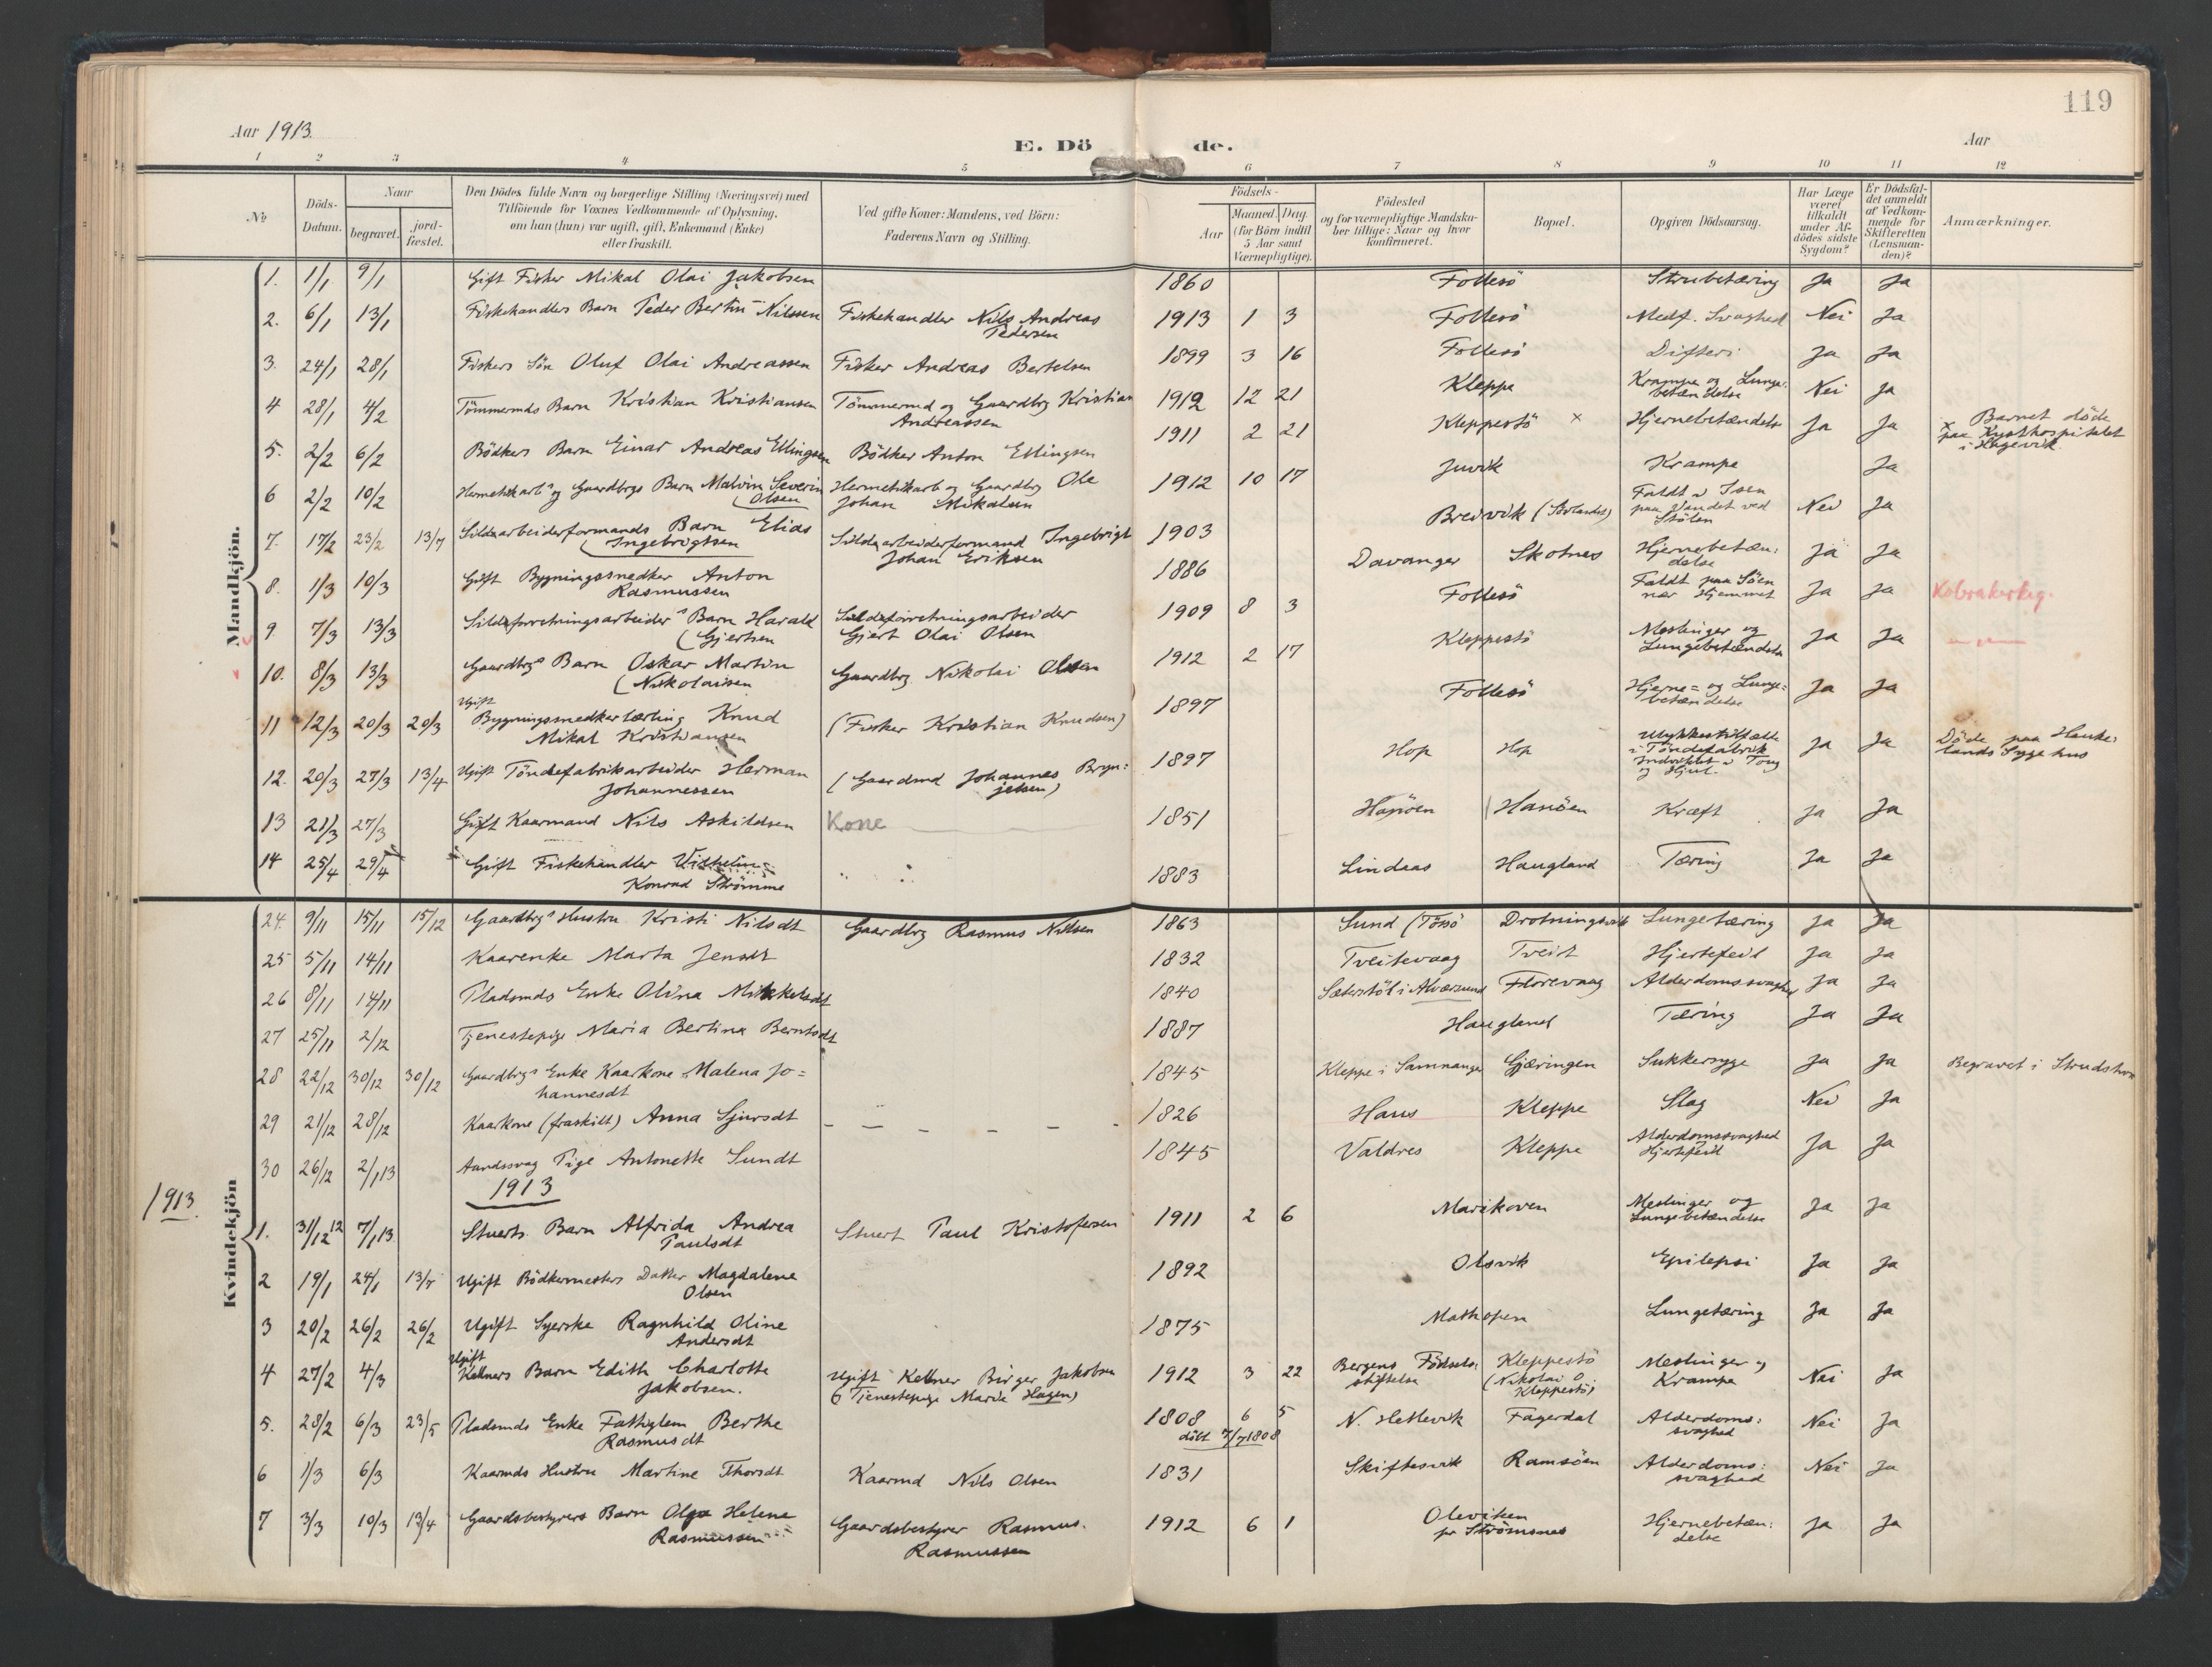 119
Aar 1913.
E. Dö de.
Aar
1 2 3 4 5 6 7 8 9 10 11 12
No
Döds-Datum.
Naar
begravet.
jord-fæstet.
Den Dödes fulde Navn og borgerlige Stilling (Næringsvei) med
Tilföiende for Voxnes Vedkommende af Oplysning,
om han (hun) var ugift, gift, Enkemand (Enke)
eller fraskilt.
Ved gifte Koner: Mandens, ved Börn:
Faderens Navn og Stilling.
Födsels-
Aar
Maaned. Dag.
(for Börn indtil
5 Aar samt
Værnepligtige).
Födested
og for værnepligtige Mandska-
ber tillige: Naar og hvor
konfirmeret.
Bopæl.
Opgiven Dödsaarsag.
Har Læge
været
tilkaldt
under Af-
dödes sidste
Sygdom?
Er Dödsfal-
det anmeldt
af Vedkom-
mende for
Skifteretten
(Lensman-
den)?
Anmærkninger.
Mandkjön.
1. 1/1 9/1 Gift Fisker Mikal Olai Jakobsen 1860 Follesö Strubetæring Ja Ja
2. 6/1 13/1 Fiskehandlers Barn Peder Bertin Nilssen Fiskehandler Nils Andreas
Pedersen 1913 1 3 Follesö Medf. Svaghed Nei Ja
3. 24/1 28/1 Fiskers Sön Oluf Olai Andreassen Fisker Andreas Bertelsen 1899 3 16 Follesö Difteri Ja Ja
4 28/1 4/2 Tömmermds Barn Kristian Kristiansen Tömmermd og Gaardbrg Kristian
Andreassen 1912 12 21 Kleppe Krampe og Lunge-
betændelse Nei Ja
5. 2/2 6/2 Bödkers Barn Einar Andreas Ellingsen Bödker Anton Ellingsen 1911 2 21 Kleppestö × Hjernebetændelse Ja Ja × Barnet döde
paa Kysthospitalet
i Hagevik.
6 2/2 10/2 Hermetikarbs og Gaardbrgs Barn Malvin Severin
Olsen Hermetikarb og Gaardbrg Ole
Johan Mikalsen 1912 10 17 Juvik Krampe Ja
7. 17/2 23/2 13/7 Sildearbeiderformands Barn Elias
Ingebrigtsen Sildearbeiderformand Ingebrigt
Johan Eriksen 1903 Breivik (Sörlandet) Faldt i Isen
paa Vandet ved
Stölen Nei Ja
8. 1/3 10/3 Gift Bygningssnedker Anton
Rasmussen 1886 Davanger Skotnes Hjernebetæn:
delse Ja Ja
9 7/3 13/3 Sildeforretningsarbeiders Barn Harald
(Gjertsen Sildeforretningsarbeider
Gjert Olai Olsen 1909 8 3 Follesö Faldt paa Söen
nær Hjemmet Ja Ja
10. 8/3 13/3 Gaardbrgs Barn Oskar Martin
(Nikolaisen Gaardbrg Nikolai Olsen 1912 2 17 Kleppestö Meslinger og
Lungebetændelse Ja Ja
11 12/3 20/3 20/3 Ugift
Bygningssnedkerlærling Knud
Mikal Kristiansen (Fisker Kristian Knudsen) 1897 Follesö Hjerne= og Lunge=
betændelse Ja Ja
12. 20/3 27/3 13/4 Ugift Töndefabrikarbeider Herman
Johannessen (Gaardmd Johannes Bryn:
jelsen) 1897 Hop Hop Ulykkestilfælde
i Töndefabrik
Indviklet i Toug
og Hjul. Ja Ja Döde paa Hauke:
lands Sygehus
13 21/3 27/3 Gift Kaarmand Nils Askildsen Kone 1851 Hanöen Hanöen Kræft Ja Ja
14 25/4 29/4 Gift Fiskehandler Vilhelm
Konrad Strömme 1883 Lindaas Haugland Tæring Ja Ja
Kvindekjön
24. 9/11 15/11 15/12 Gaardbrgs Hustru Kristi Nilsdt Gaardbrg Rasmus Nilsen 1863 Sund (Tösö Drotningsvik Lungetæring Ja Ja
25 5/11 14/11 Kaarenke Marta Jensdt 1832 Tveitevaag Tveit Hjertefeil Ja Ja
26 8/11 14/11 Pladsmds Enke Olina Mikkelsdt 1840 Sæterstöl i Alversund Florevaag Alderdomssvaghed Ja Ja
27 25/11 2/12 Tjenestepige Maria Bertina Berntsdt 1887 Haugland Tæring Ja Ja
28 22/12 30/12 30/12 Gaardbrgs Enke Kaarkone Malena Jo=
hannesdt 1845 Kleppe i Samnanger Gjæringen Sukkersyge Ja Ja Begravet i Strudshavn
29 21/12 28/12 Kaarkone (fraskilt) Anna Sjursdt 1826 Haus Kleppe Slag Nei Ja
30 26/12 2/1 13 Aandssvag Pige Antonette Sundt 1845 Valdres Kleppe Alderdomssvaghed
Hjertefeil Ja Ja
1913.
1913
1. 31/12 12 7/1 13. Stuerts Barn Alfrida Andrea
Paulsdt Stuert Paul Kristofersen 1911 2 6 Marikoven Meslinger og
Lungebetændelse Ja Ja
2 19/1 24/1 13/7 Ugift Bödkermesters Datter Magdalene
Olsen 1892 Olsvik Epilepsi Ja Ja
3 20/2 26/2 26/2 Ugift Syerske Ragnhild Oline
Andersdt 1875 Mathopen Lungetæring Ja Ja
4 27/2 4/3 Ugift
Kelners Barn Edith Charlotte
Jakobsen. Ugift Kelner Birger Jakobsen
Tjenestepige Marie Hagen) 1912 3 22 Bergens Födsels:
stiftelse Kleppestö
(Nikolai O
Kleppestö) Meslinger og
Krampe Nei Ja
5. 28/2 6/3 23/5 Pladsmds Enke Fattiglem Berthe
Rasmusdt 1808 6 5
döbt 7/7 1808 N. Hetlevik Fagerdal Alderdoms:
svaghed Nei Ja
6 1/3 6/3 Kaarmds Hustru Martine Thorsdt Kaarmd Nils Olsen 1831 Skiftesvik Ramsöen Alderdoms:
svaghed Nei Ja
7 3/3 10/3 13/4 Gaardsbestyrers Barn Olga Helene
Rasmussen Gaardsbestyrer Rasmus
Rasmussen 1912 6 1 Oleviken
pr Strömsnes Hjernebetæn:
delse Ja Ja